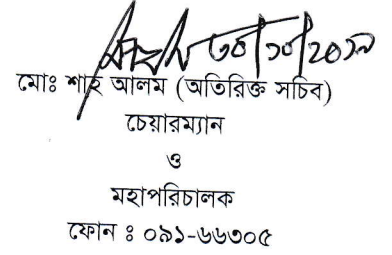 ৩০/১০/২০১৯
মোঃ শাহ আলম (অতিরিক্ত সচিব)
চেয়ারম্যান
ও
মহাপরিচালক
ফোন ঃ ০৯১-৬৬৩০৫